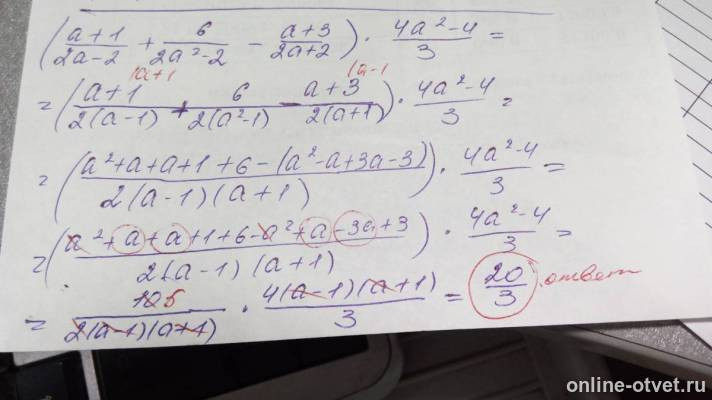 (a+1/2a-2 + 6/2a²-2 - a+3/2a+2) · 4a²-4/3 =
= (a+1/2(a-1) + 6/2(a²-1) - a+3/2(a+1)) · 4a²-4/3 =
= (a²+a+a+1+6-(a²-a+3a-3)/2(a-1)(a+1)) · 4a²-4/3 =
= (a²+a+a+1+6-a²+a-3a+3/2(a-1)(a+1)) · 4a²-4/3 =
= 10 5/2(a-1)(a+1) · 4(a-1)(a+1)/3 = 20/3 . ответ
online-otvet.ru